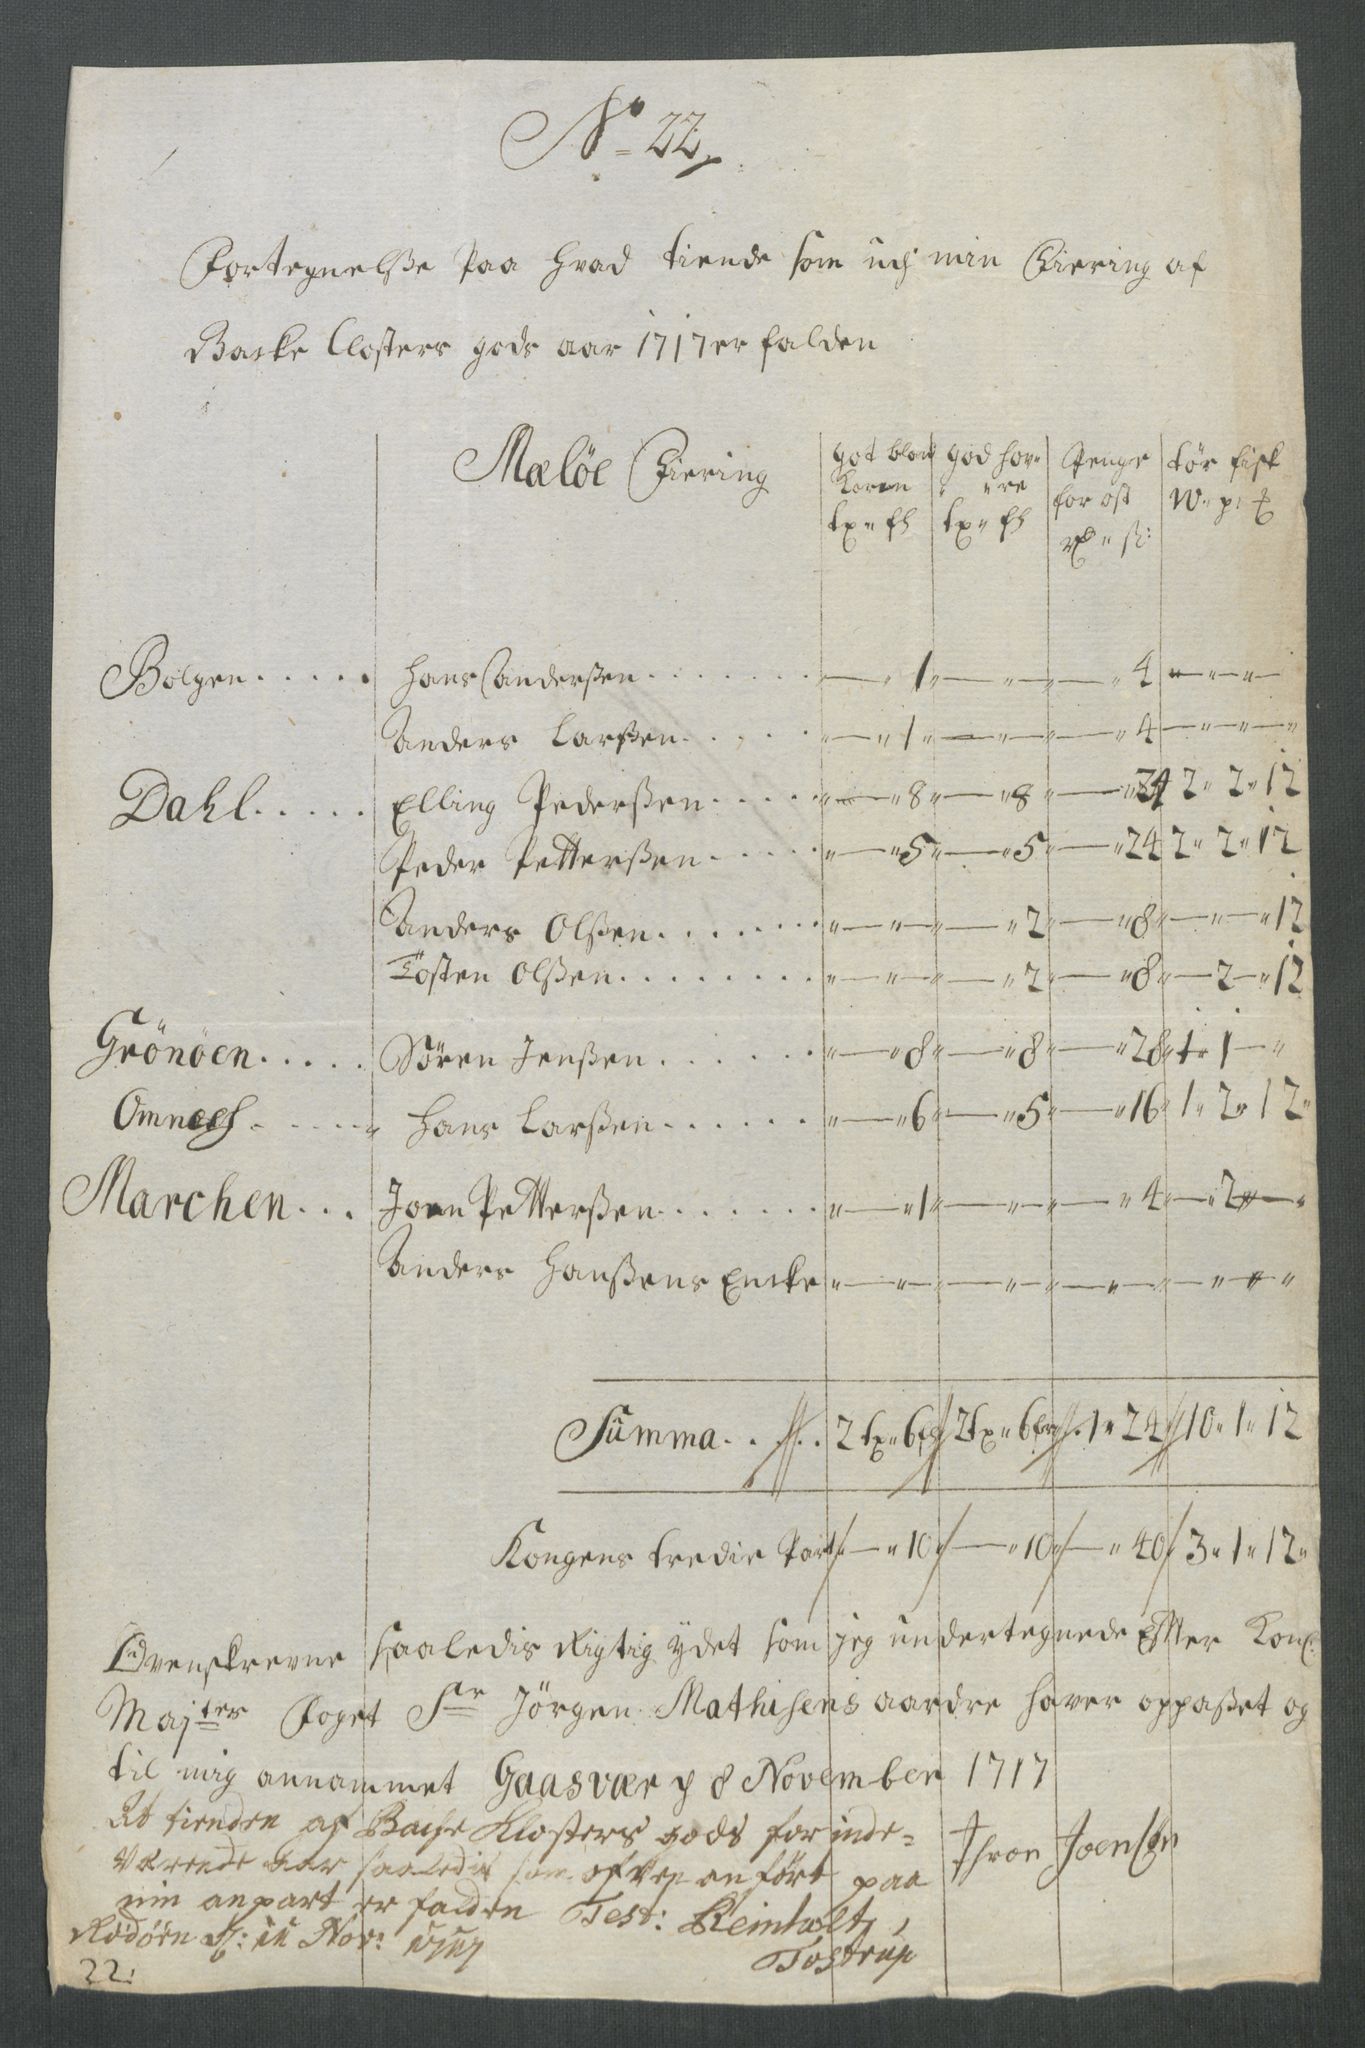 No 22
Fortegnelsse Paa hvad tiende som udj min Fiering af
Backe Closters gods aar 1717 er falden
Meløe Fiering | got bland Korn tp " fh | god hov" " re tp " fh | Penge for ost rd " ß: | tör fisk W " p "
Bolgen..... Hans Anderssen....... " — " 1 " — " " — " 4 " — " — "
Anders Larssen..... " — " 1 " — " " — " 4 — " — " — "
Dahl..... Elling Pederssen..... " — " 8 " — " 8 " — " 24 2 " 2 " 12
Peder Petterssen..... " — " 5 " — " 5 " — " 24 2 " 2 " 12
Anders Olssen....... " — " " " — " 2 " — " 8 " — " — " 12
Tosten Olssen........ " — " " " — " 2 " — " 8 " — 2 — " 12
Grönöen..... Sören Jenssen...... " — " 8 " — " 8 " — " 28 " 1 " 1 — "
Omnesh..... Hans Larssen...... " — " 6 " — " 5 " — " 16 " 1 " 2 " 12 "
Marchen... Joen Petterssen....... " — " 1 " — " " — " 4 " — " 2 " — "
Anders Hanssens Encke " — " " — " " — " " — " " "
Summa..... 2 tp " 6 fh // 2 tp " 6 fh // 1 " 24 // 10 " 1 " 12
Kongens tredie Part / — " 10 / — " 10 / — " 40 / 3 " 1 " 12 "
Ovenskrevne saaledis Rigtig ydet som jeg undertegnede Effter Kongl:
Majters Foget Sr Jörgen Mathisens aardre haver oppasset og
til mig annammet Gaasvær d 8 November 1717
Thron Joensøn
At tienden af Backe Klosters gods for inde=
værende aar saaledis som ofven anført paa
min anpart er falden Test: Reinholt
Rødøen d: 11 Nov: 1717 Tostrup
22: